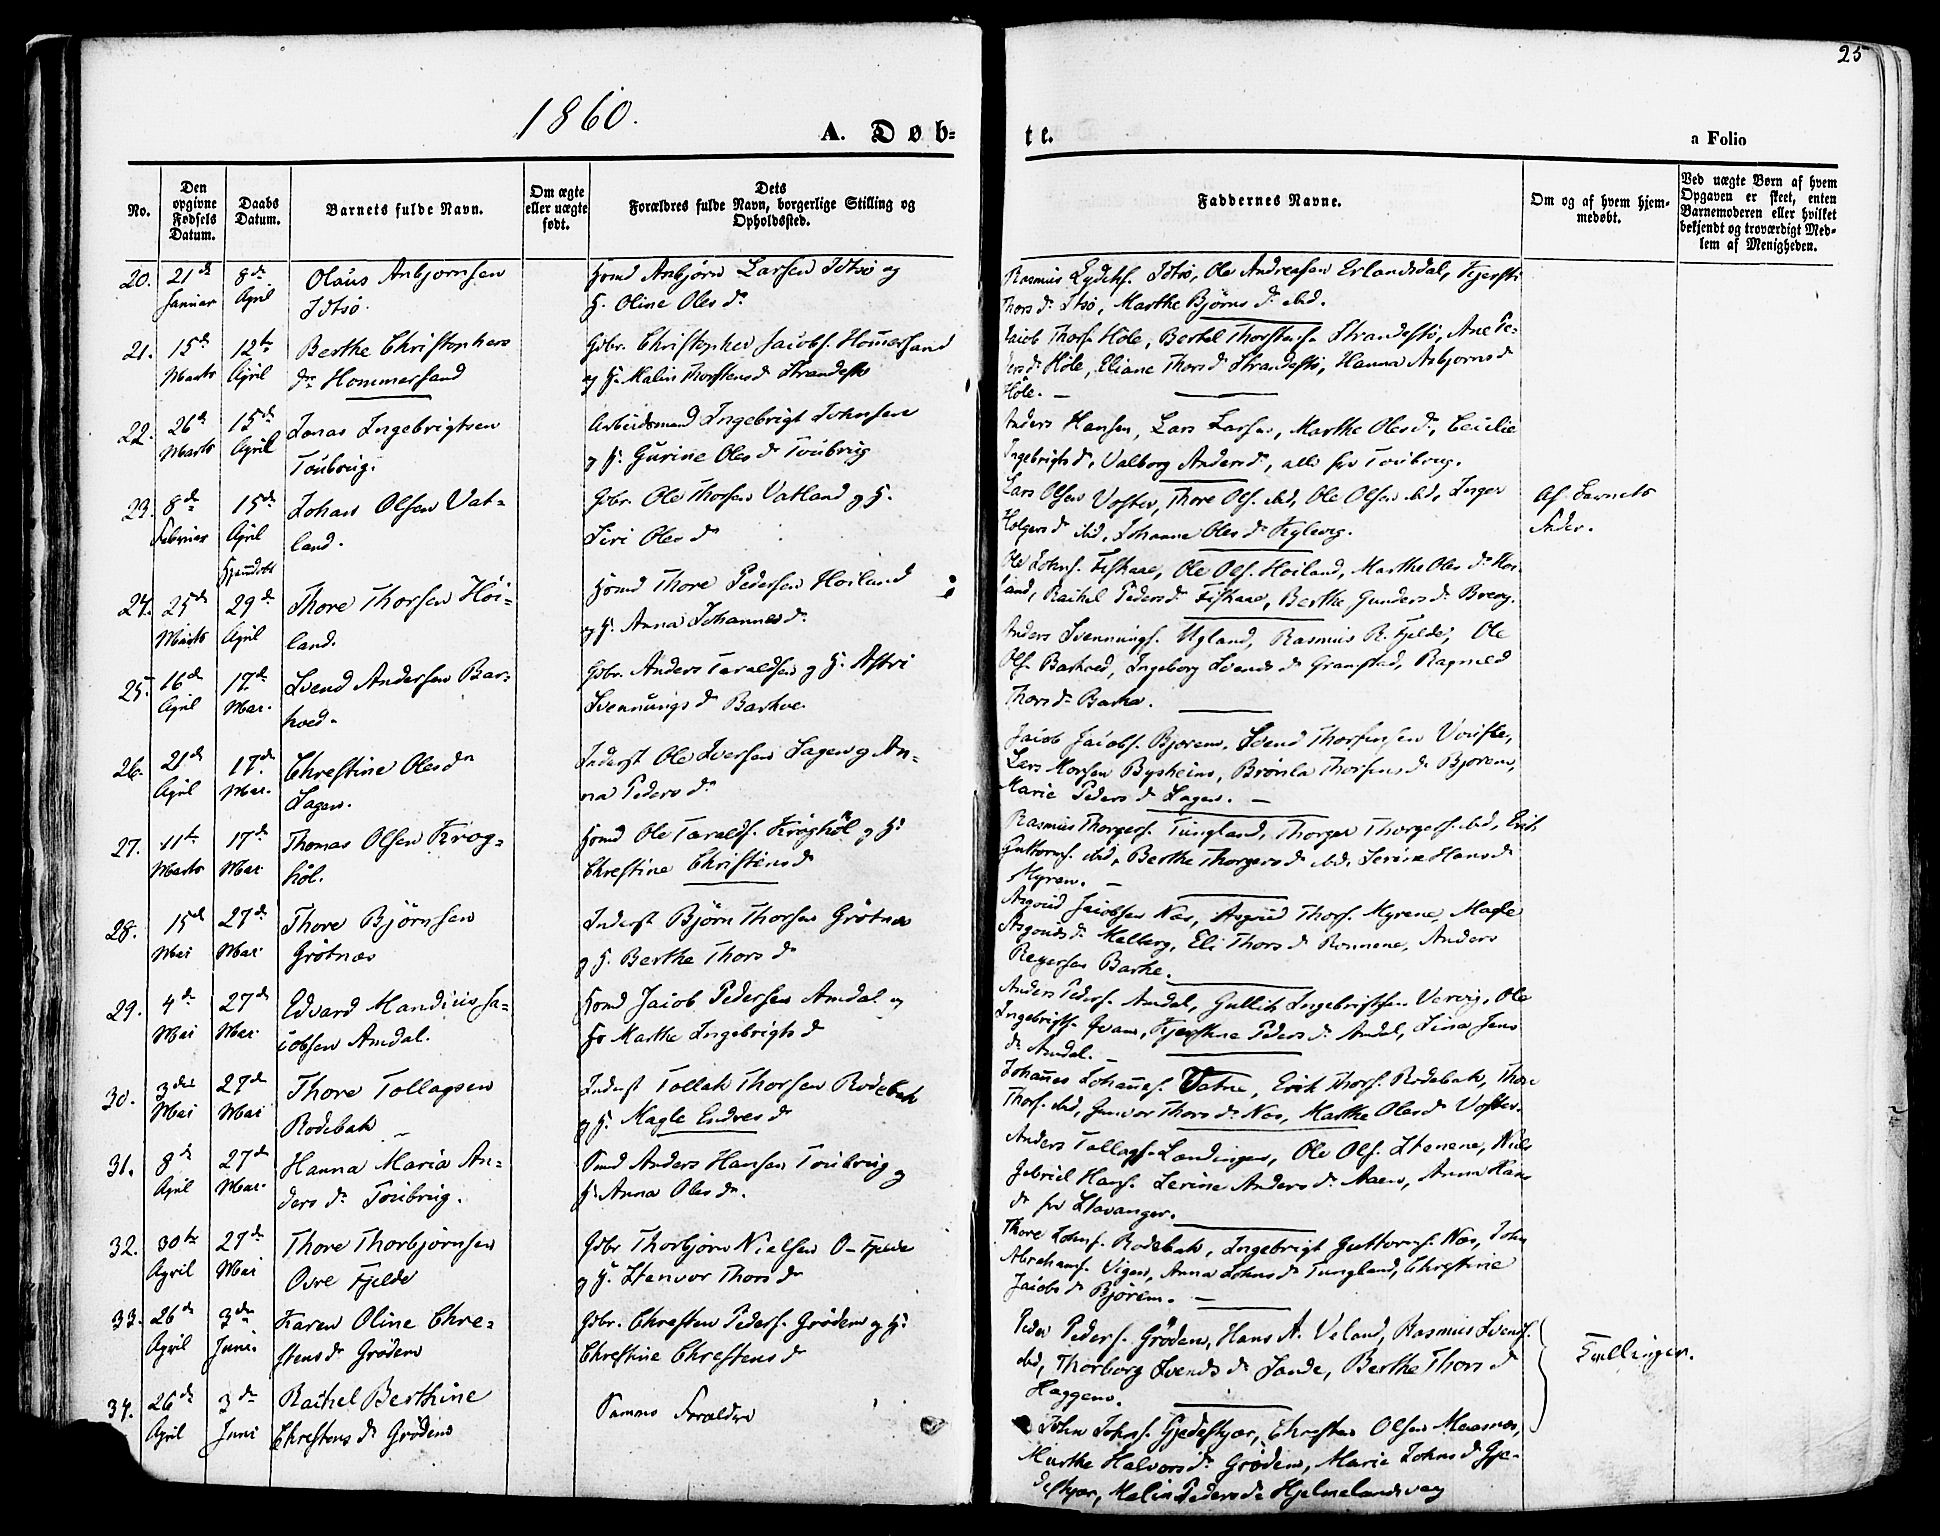 25
1860.
A. Døb-
te.
a Folio
No.
Den opgivne Fødsels Datum.
Daabs Datum.
Barnets fulde Navn.
Om ægte eller uægte født.
Dets Forældres fulde Navn, borgerlige Stilling og Opholdssted.
Faddernes Navne.
Om og af hvem hjem-
medøbt.
Ved uægte Børn af hvem
Opgaven er skeet, enten
Barnemoderen eller hvilket
bekjendt og troværdigt Med-
lem af Menigheden.
20. 21de Januar 8de April
Olaus Asbjørnsen
Idtsø.
Hsmd Asbjørn Larsen Idtsø og
H. Oline Olesdr
Rasmus Eydets. Idtsø, Ole Andreasen Erlandsdal, Kjersti
Thorsdr Itsø, Marthe Bjørnsdr ibid.
21. 15de Marts 12te April
Berthe Christophers
dr Hommersand
Gdbr. Christopher Jacobs. Homersand
og H. Malin Thorstensdr Strandestø
Jacob Thors. Høle, Bertel Thorstensen Strandestø, Ane Pe-
dersdr Høle, Eliane Thorsdr Strandestø, Hanna Asbjornsdr
Høle.
22. 26de Marts 15de April
Jonas Ingebrigtsen
Toubrug.
Arbeidsmand Ingebrigt Johnsen
og H. Gurine Olesdr Toubrug
Anders Hansen, Lars Larsen, Marthe Olesdr, Cecilie
Ingebrigtsdr, Valborg Andersdr, alle fra Toubrug.
23. 8de Februar 15de April Hjemdøbt
Johan Olsen Vat-
land.
Gbr. Ole Thorsen Vatland og H.
Siri Olesdr
Lars Olsen Voster, Thore Ols. ibid, Ole Olsen ibid, Inger
Holgersdr ibid, Johanne Olesdr Kylevig.
Af Barnets
Fader.
24. 25de Marts 29de April
Thore Thorsen Høi-
land.
Hsmd Thore Pedersen Høiland
og H. Anna Johannesdr.
Ole Johns. Fiskaae, Ole Ols. Høiland, Marthe Olesdr Høi-
land, Rachel Pedersdr Fiskaae, Berthe Gundersdr Breeg.
25. 16de April 17de Mai.
Svend Andersen Bar-
hoed.
Gdbr. Anders Taraldsen og H. Astri
Svennungsdr Barhoe
Anders Svennungs. Ugland, Rasmus R. Fjelde, Ole
Ols. Barhoed, Ingeborg Svendsdr Gramstad, Ragnild
Thorsdr Barka.
26. 21de April 17de Mai.
Chrestine Olesdr
Sagen.
Inderst Ole Iversen Sagen og An-
na Pedersdr
Jacob Jacobs. Bjorem, Svend Thorsensen
Lars Monsen Bysheim, Brønla Thorsensdr Bjorem,
Marie Pedersdr Sagen.
27. 11te Marts 17de Mai
Thomas Olsen Krog-
høl.
Hsmd Ole Taralds. Kroghøl og H.
Chrestine Christensdr
Rasmus Thorgers. Tungland, Thorger Thorgers. ibid, Erik
Guttorms. ibid, Berthe Thorgersdr ibid, Serine Hansdr
Myren.
28. 15de Mai 27de Mai
Thore Bjørnsen
Grøtnæs
Inderst Bjørn Thorsen Grøtnæs
og H. Berthe Thorsdr
Asgoud Jacobsen Næs, Asgoud Thors. Myrene, Magle
Asgoudsdr Melberg, Eli Thorsdr Ronnene, Anders
Reyersen Barke.
29. 4de Mai 27de Mai
Edvard Mandius Ja-
cobsen Amdal.
Hsmd Jacob Pedersen Amdal og
H. Marthe Ingebrigtsdr
Anders Peders. Amdal, Gullik Ingebrigtsen Vervig, Ole
Ingebrigts. Qvam, Kjerstine Pedersdr Amdal, Sina Jens
dr Amdal.
30. 3die Mai 27de Mai
Thore Tollagsen
Rodebak
Inderst Tollak Thorsen Rodebak
og H. Magle Endresdr
Johannes Johannes. Vatne, Erik Thors. Rodebak, Thore
Thors. ibid, Gunvor Thorsdr Næs, Marthe Olesdr Voster.
31. 8de April 27de Mai
Hanna Maria An-
dersdr Toubrug.
Smd Anders Hansen Toubrug og
H. Anna Olesdr.
Anders Tollagsen Landinger, Ole Ols. Stenene, Niels
Gabriel Hans. Serine Andersdr Aaen, Anna Hans
dr fra Stavanger.
32. 30te April 27de Mai
Thore Thorbjørnsen
Ovre Fjelde
Gdbr Thorbjørn Nielsen O-Fjelde
og H. Stenvor Thorsdr
Thore Johns. Rodebak, Ingebrigt Guttorms. Næs, John
Abrahams. Vigen, Anna Johnsdr Tungland, Chrestine
Jacobsdr Bjørem.
33. 26de April 3die Juni.
Karen Oline Chre-
stensdr Grødem
Gdbr. Chresten Peders. Grødem og H.
Chrestine Chrestensdr
Peder Peders. Grødem, Hans A. Veland, Rasmus Svends.
ibid, Thorborg Svendsdr Sande, Berthe Thorsdr
Haggem.
Tvillinger.
34. 26de April 3die Juni
Rachel Berthine
Chrestensdr Grødem
Samme Forældre
John Johns. Gjedeskjær, Chresten Olsen Maasnæs,
Marthe Halvorsdr Grødem, Marie Johnsdr Gje-
deskjær, Malin Pedersdr Hjelmelandsvaag